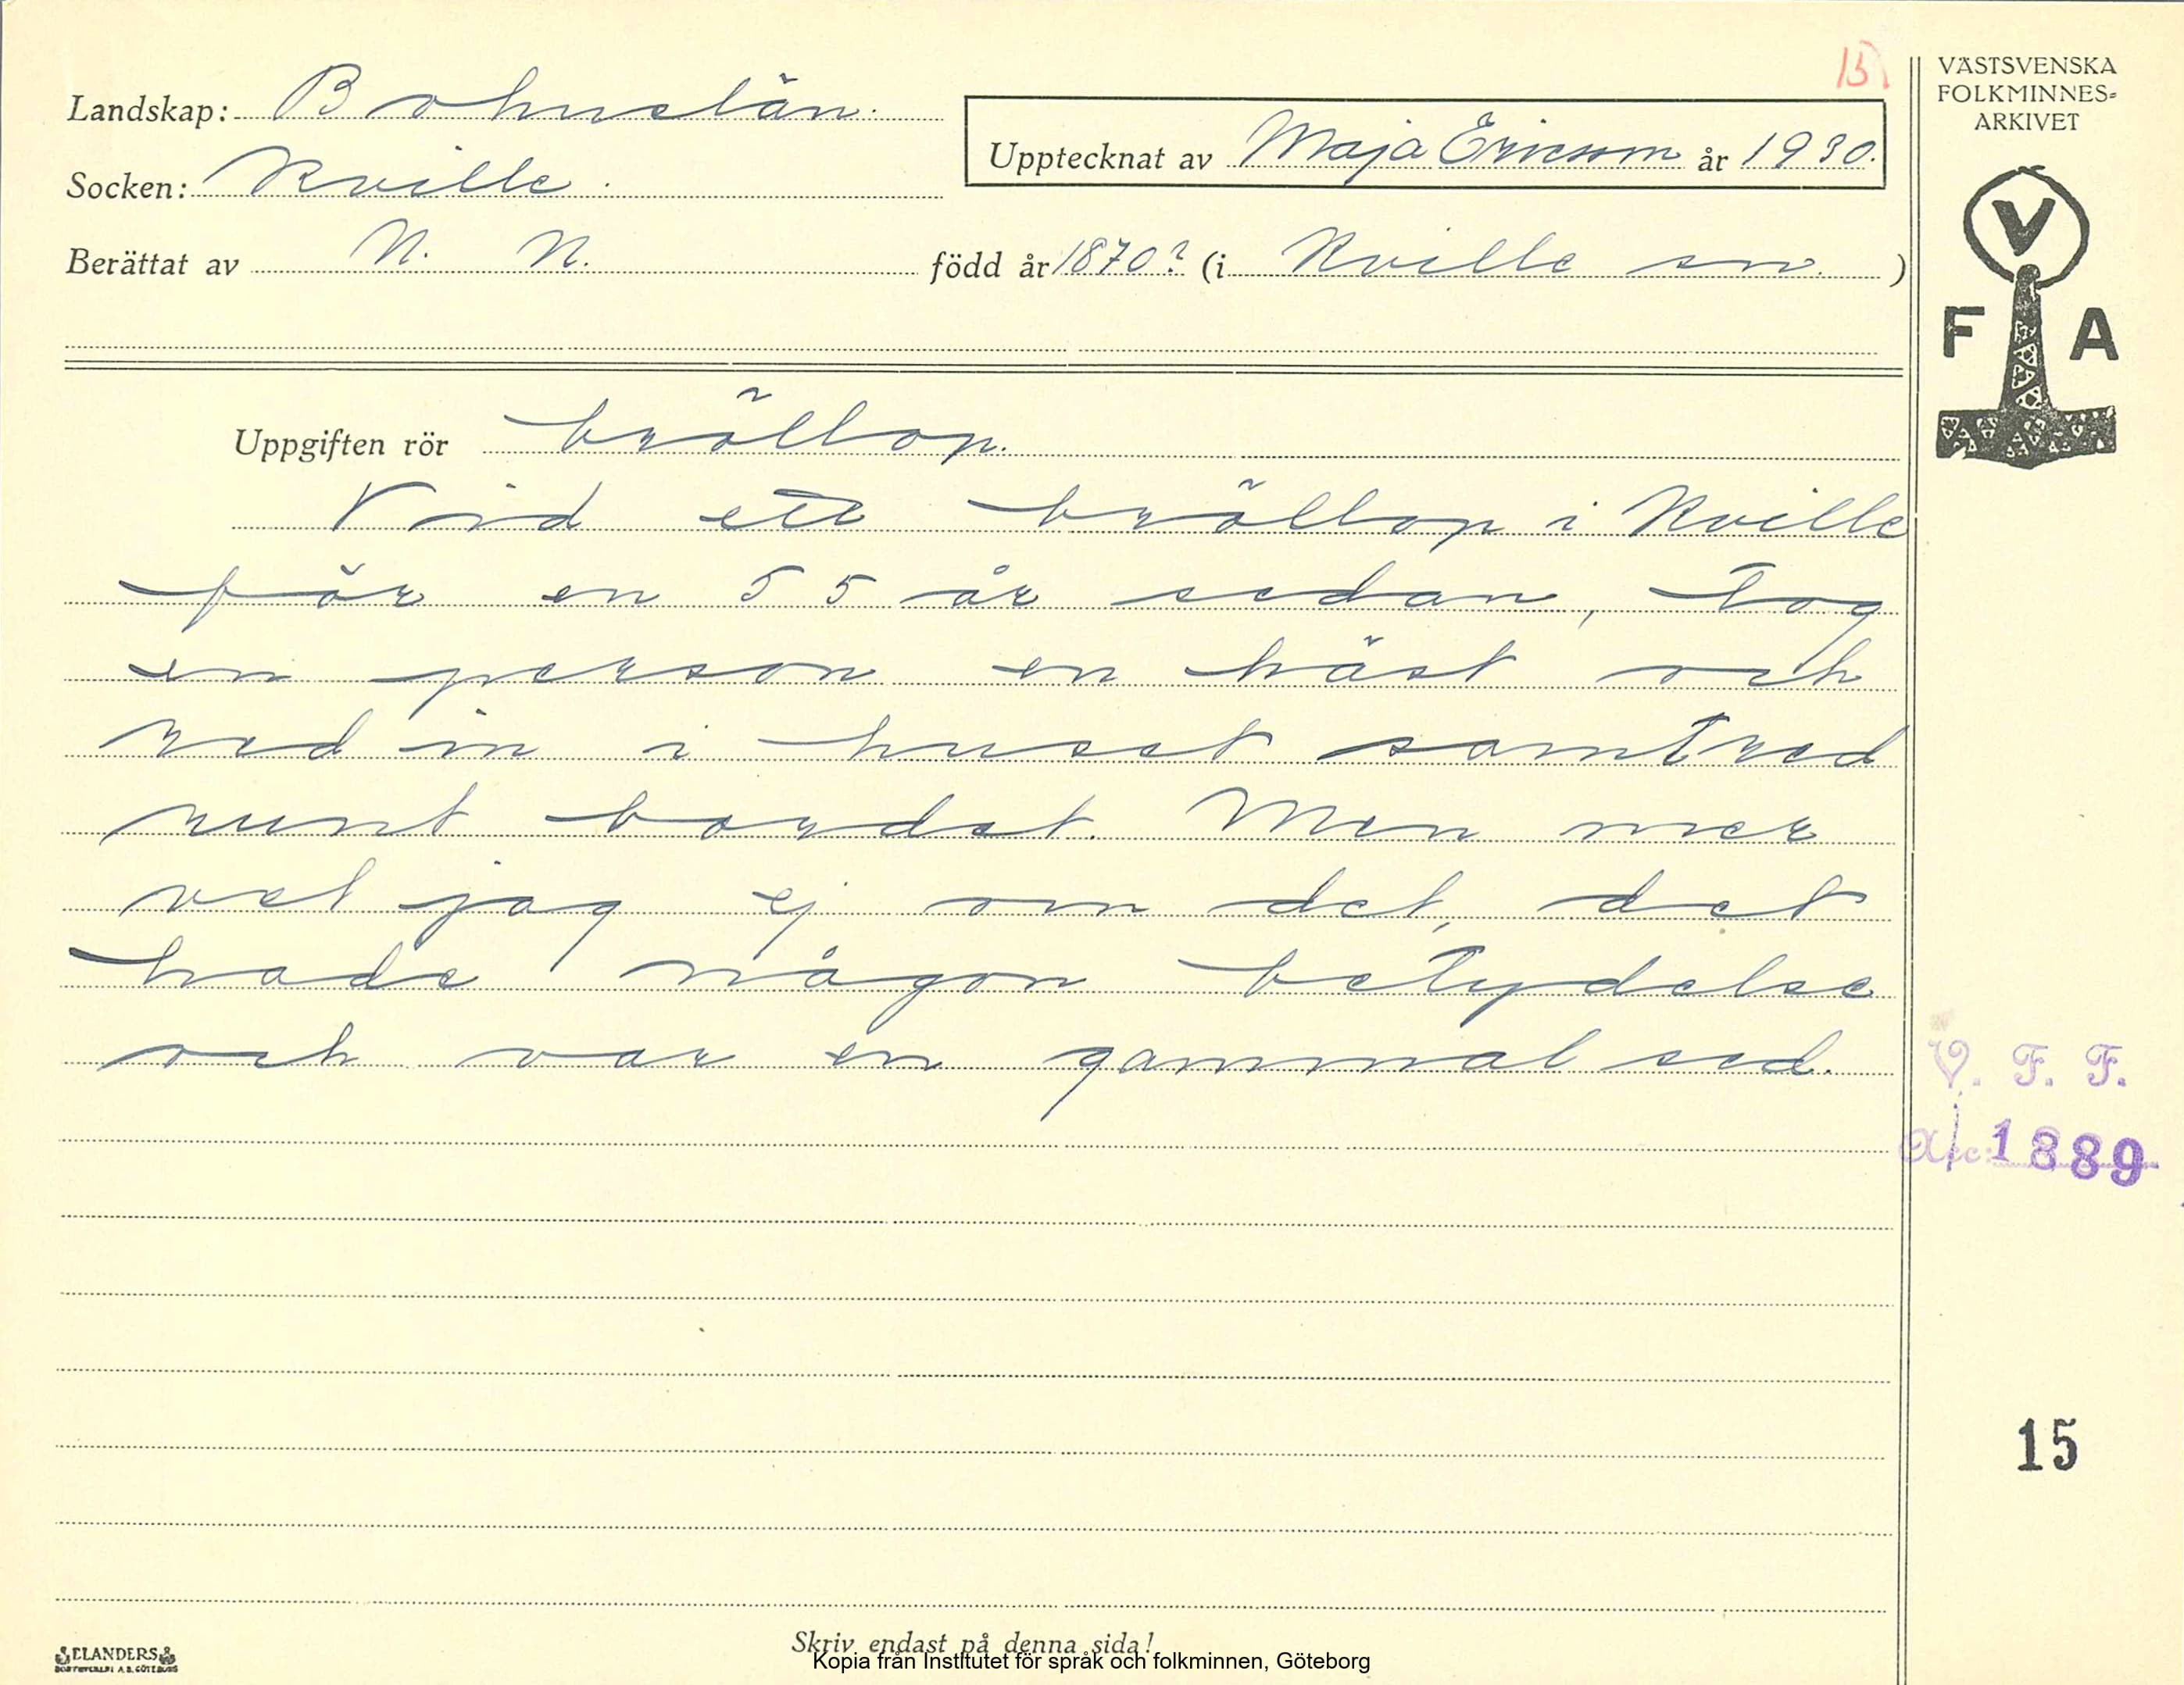 15
Landskap: Bohuslän.
Upptecknat av Maja Ericson år 1930.
Socken: Kville.
Berättat av N. N. född år 1870? (i Kville sn.)
Uppgiften rör bröllop.
Vid ett bröllop i Kville
för en 55 år sedan, tog
en person en häst och
red in i huset samt red
runt bordet. Men mer
vet jag ej om det, det
hade någon betydelse
och var en gammal sed.
Skriv endast på denna sida!
Kopia från Institutet för språk och folkminnen, Göteborg
ELANDERS
BOKTRYCKERI A.B. GÖTEBORG
VÄSTSVENSKA
FOLKMINNES-
ARKIVET
V
F A
V. F. F.
Acc: 1889
15